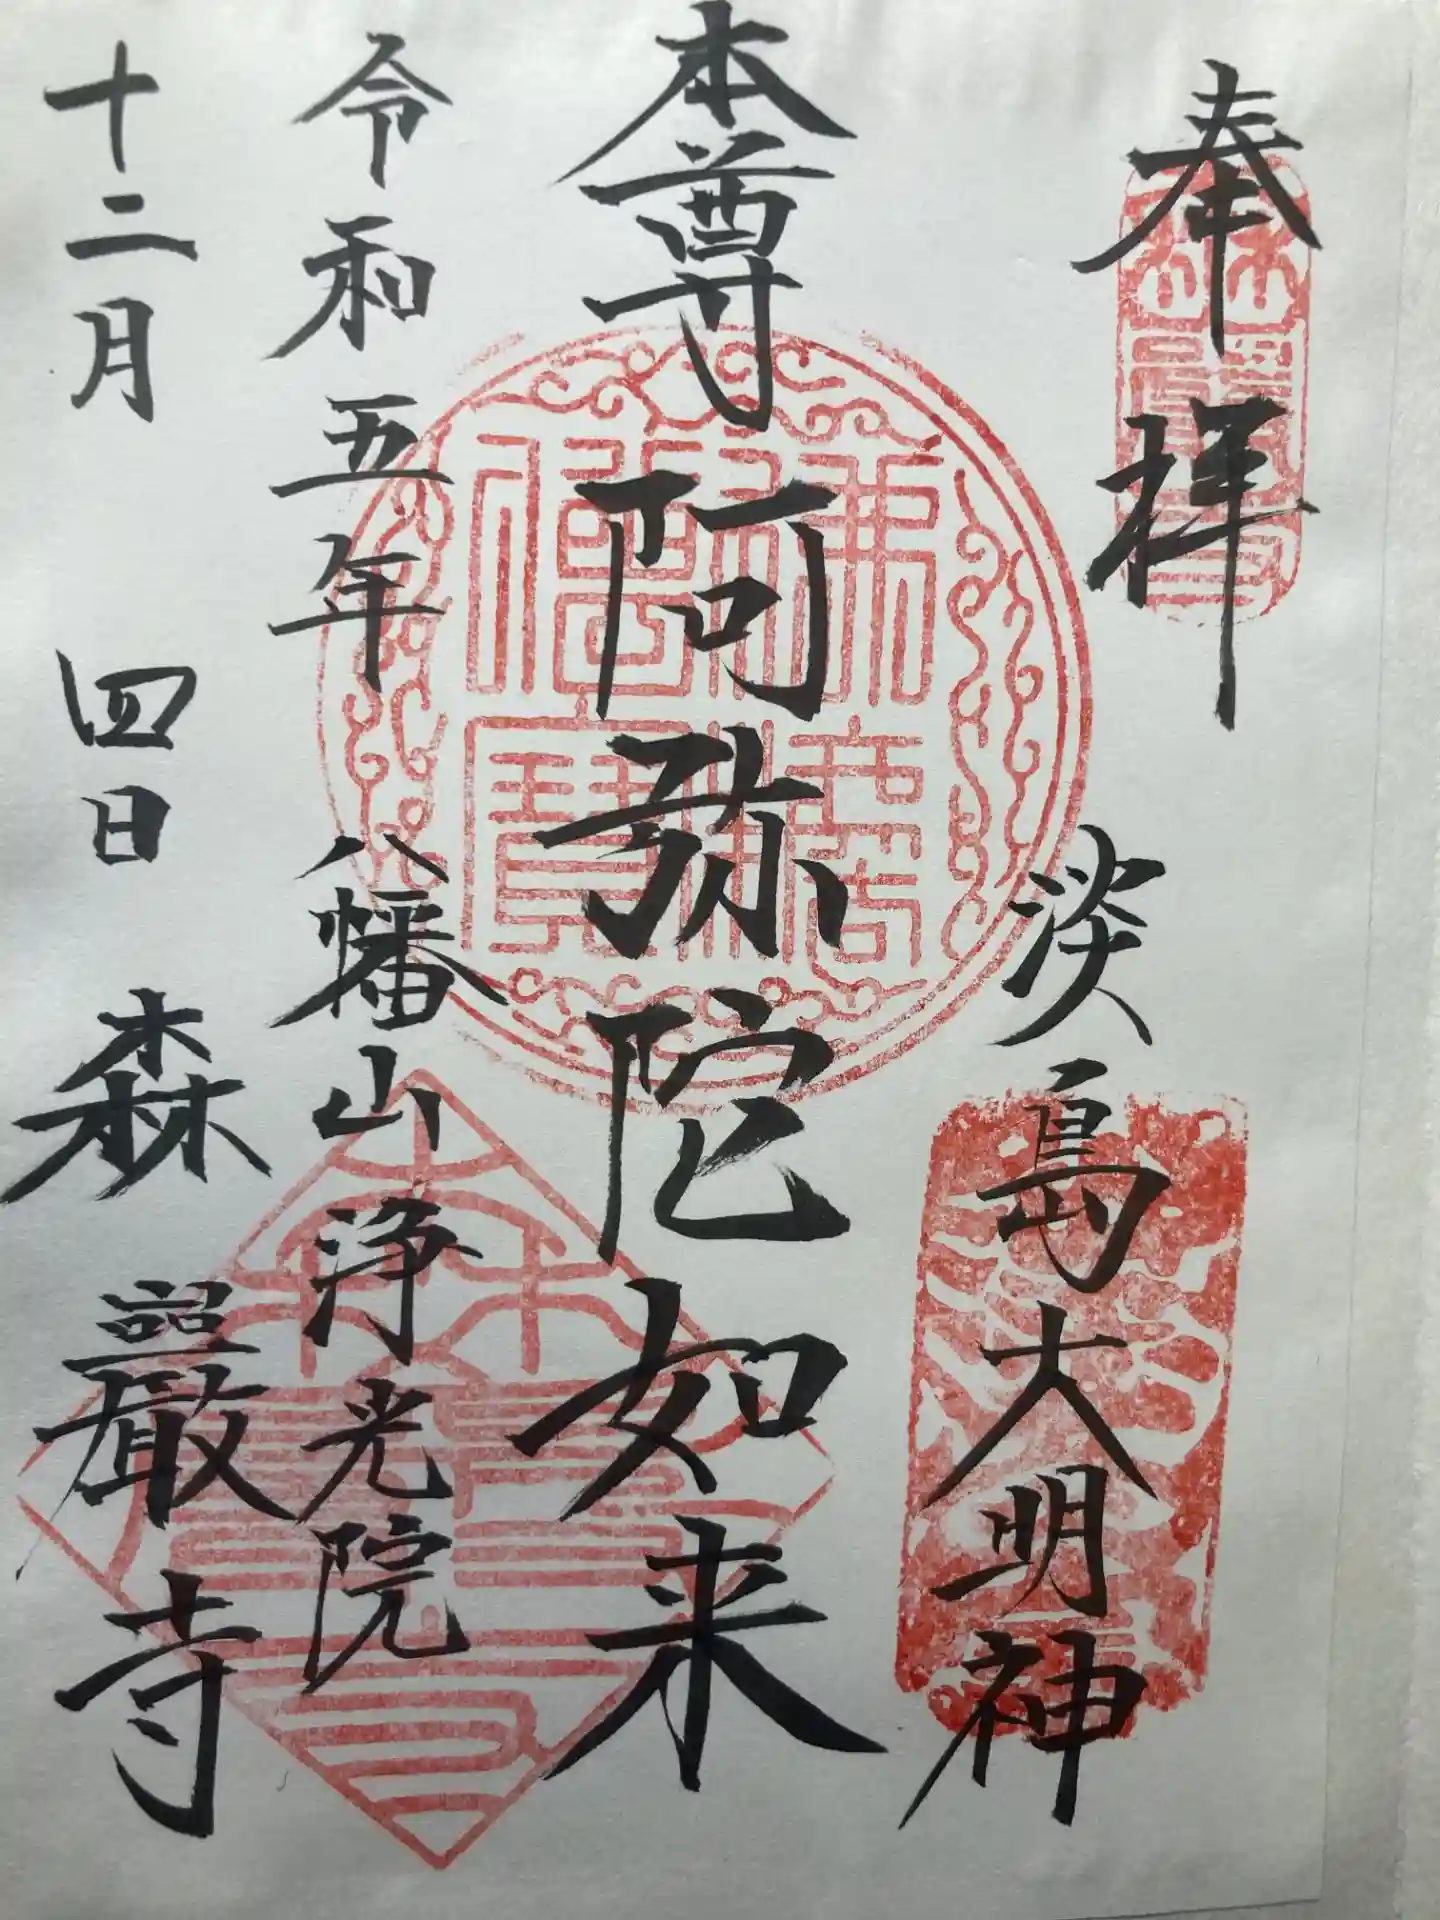 奉拝
淡島大明神
本尊 阿弥陀如来
令和五年 八幡山浄光院
十二月 四日 森巖寺